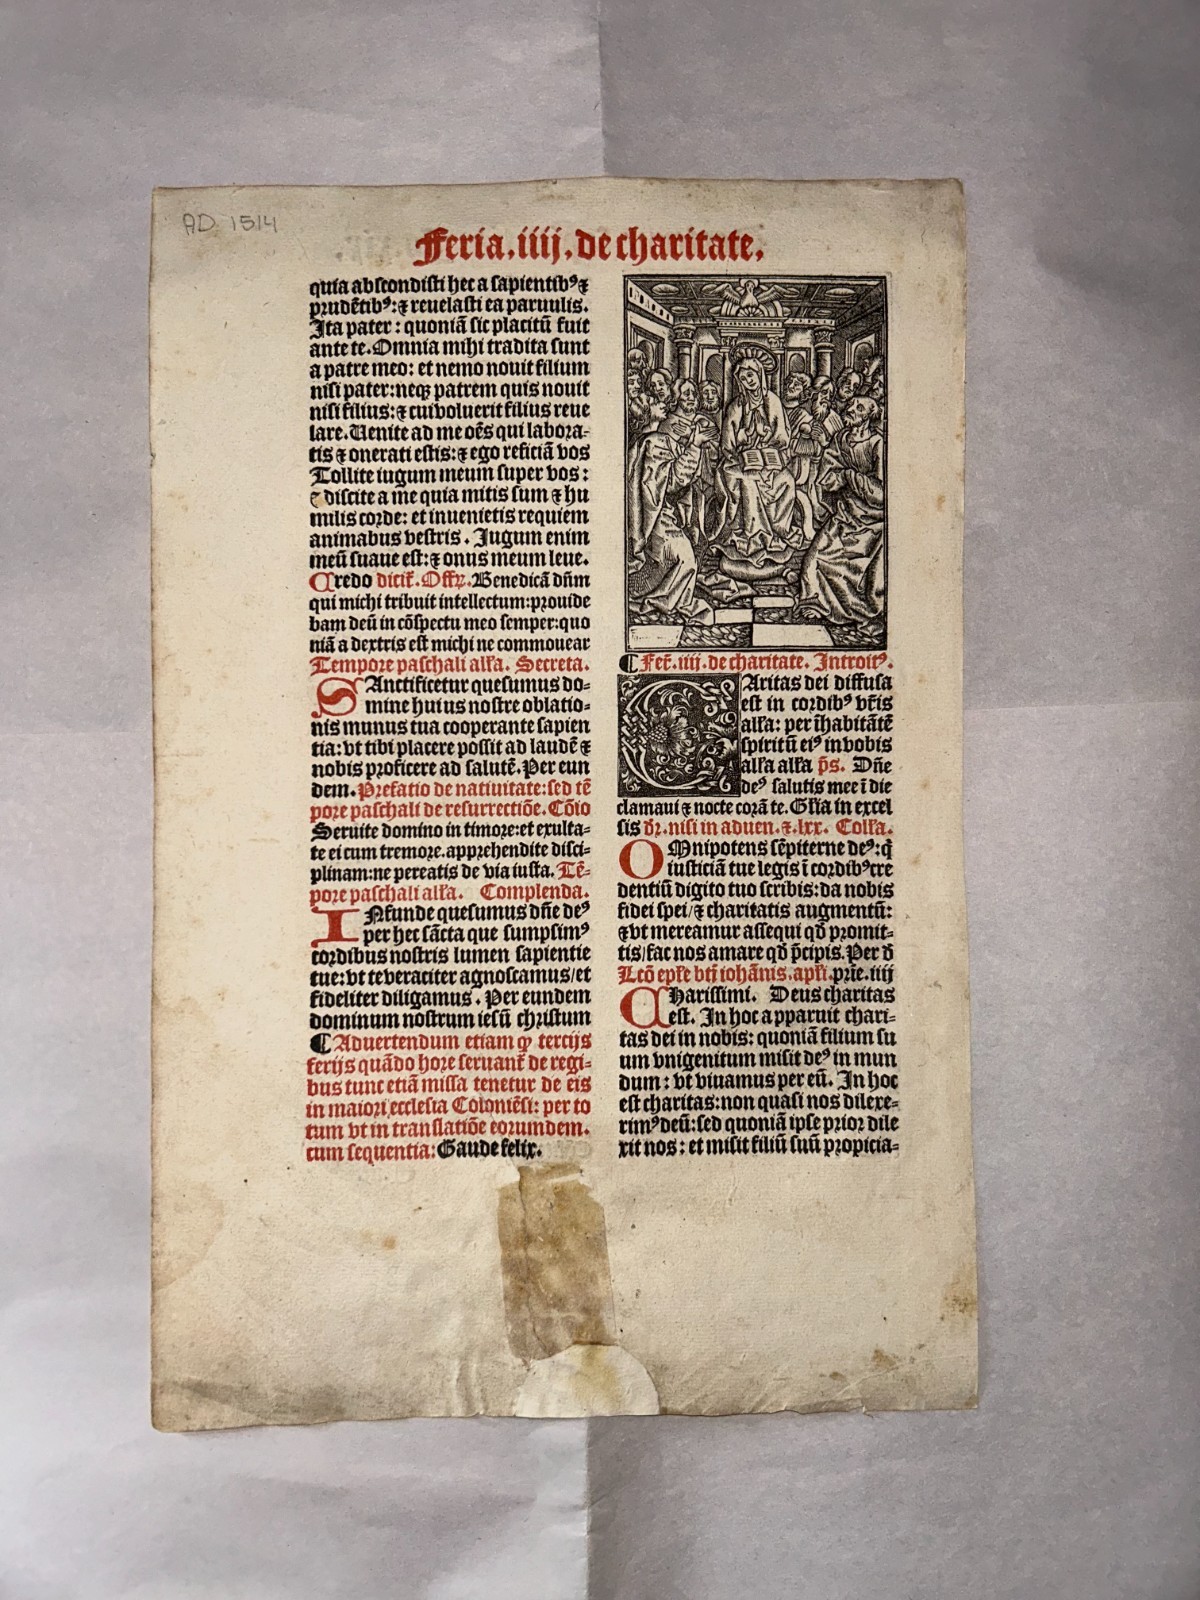 AD 1514
Feria.iiij.de charitate.
quia abscondisti hec a sapientibꝰ ⁊
prudētibꝰ:⁊ reuelasti ea paruulis.
Ita pater: quoniā sic placitū fuit
ante te. Omnia mihi tradita sunt
a patre meo: et nemo nouit filium
nisi pater: neqꝫ patrem quis nouit
nisi filius:⁊ cui voluerit filius reue
lare. Uenite ad me oēs qui labora-
tis ⁊ onerati estis:⁊ ego reficiā vos
Tollite iugum meum super vos:
⁊ discite a me quia mitis sum ⁊ hu
milis corde: et inuenietis requiem
animabus vestris. Jugum enim
meū suaue est:⁊ onus meum leue.
Credo dicit̄. Offꝝ. Benedicā dn̄m
qui michi tribuit intellectum: prouide
bam deū in cōspectu meo semper: quo
niā a dextris est michi ne commouear
Tempore paschali alła. Secreta.
SAnctificetur quesumus do-
mine huius nostre oblatio-
nis munus tua cooperante sapien
tia: vt tibi placere possit ad laudē ⁊
nobis proficere ad salutē. Per eun
dem. Prefatio de natiuitate: sed tē
pore paschali de resurrectiōe. Cōio
Seruite domino in timore: et exulta-
te ei cum tremore. apprehendite disci-
plinam: ne pereatis de via iusta. Tē-
pore paschali alła. Complenda.
INfunde quesumus dn̄e deꝰ
per hec sācta que sumpsimꝰ
cordibus nostris lumen sapientie
tue: vt te veraciter agnoscamus/et
fideliter diligamus. Per eundem
dominum nostrum iesū christum
¶ Aduertendum etiam ꝙ tercijs
ferijs quādo hore seruant̄ de regi-
bus tunc etiā missa tenetur de eis
in maiori ecclesia Coloniēsi: per to
tum vt in translatiōe eorundem.
cum sequentia: Gaude felix.
¶ Fer̄. iiij. de charitate. Introitꝰ.
CAritas dei diffusa
est in cordibꝰ vr̄is
alła: per īhabitātē
spiritū eiꝰ in vobis
alła alła p̄s. Dn̄e
deꝰ salutis mee ī die
clamaui ⁊ nocte corā te. Gl̄ia in excel
sis dr̄. nisi in aduen. ⁊. lxx. Colła.
OMnipotens sēpiterne deꝰ: q̄
iusticiā tue legis ī cordibꝰ cre
dentiū digito tuo scribis: da nobis
fidei spei/⁊ charitatis augmentū:
⁊ vt mereamur assequi qd̄ promit-
tis/fac nos amare qd̄ p̄cipis. Per d̄
Lcō epłe bt̄i iohānis. apłi. prīe. iiij
CHarissimi. Deus charitas
est. In hoc apparuit chari-
tas dei in nobis: quoniā filium su
um vnigenitum misit deꝰ in mun
dum: vt viuamus per eū. In hoc
est charitas: non quasi nos dilexe-
rimꝰ deū: sed quoniā ipse prior dile
xit nos: et misit filiū suū propicia-